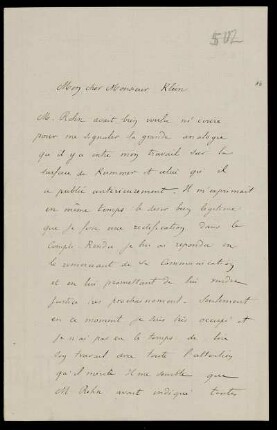 Mon cher Monsieur Klein
M. Rohn avait bien voulu m'écrire
pour me signaler la grande analogie
qu'il y a entre mon travail sur la
surface de Kummer et celui qu'il
a publié antérieurement. Il m'exprimait
en même temps le désir bien légitime
que je fisse une rectification dans les
Comptes Rendus je lui ai répondu en
le remerciant de sa communication
et en lui promettant de lui rendre
justice très prochainement. Seulement
en ce moment je suis très occupé et
je n'ai pas eu le temps de lire
son travail avec toute l'attention
qu'il mérite. Il me semble que
M Rohn avait indiqué toutes